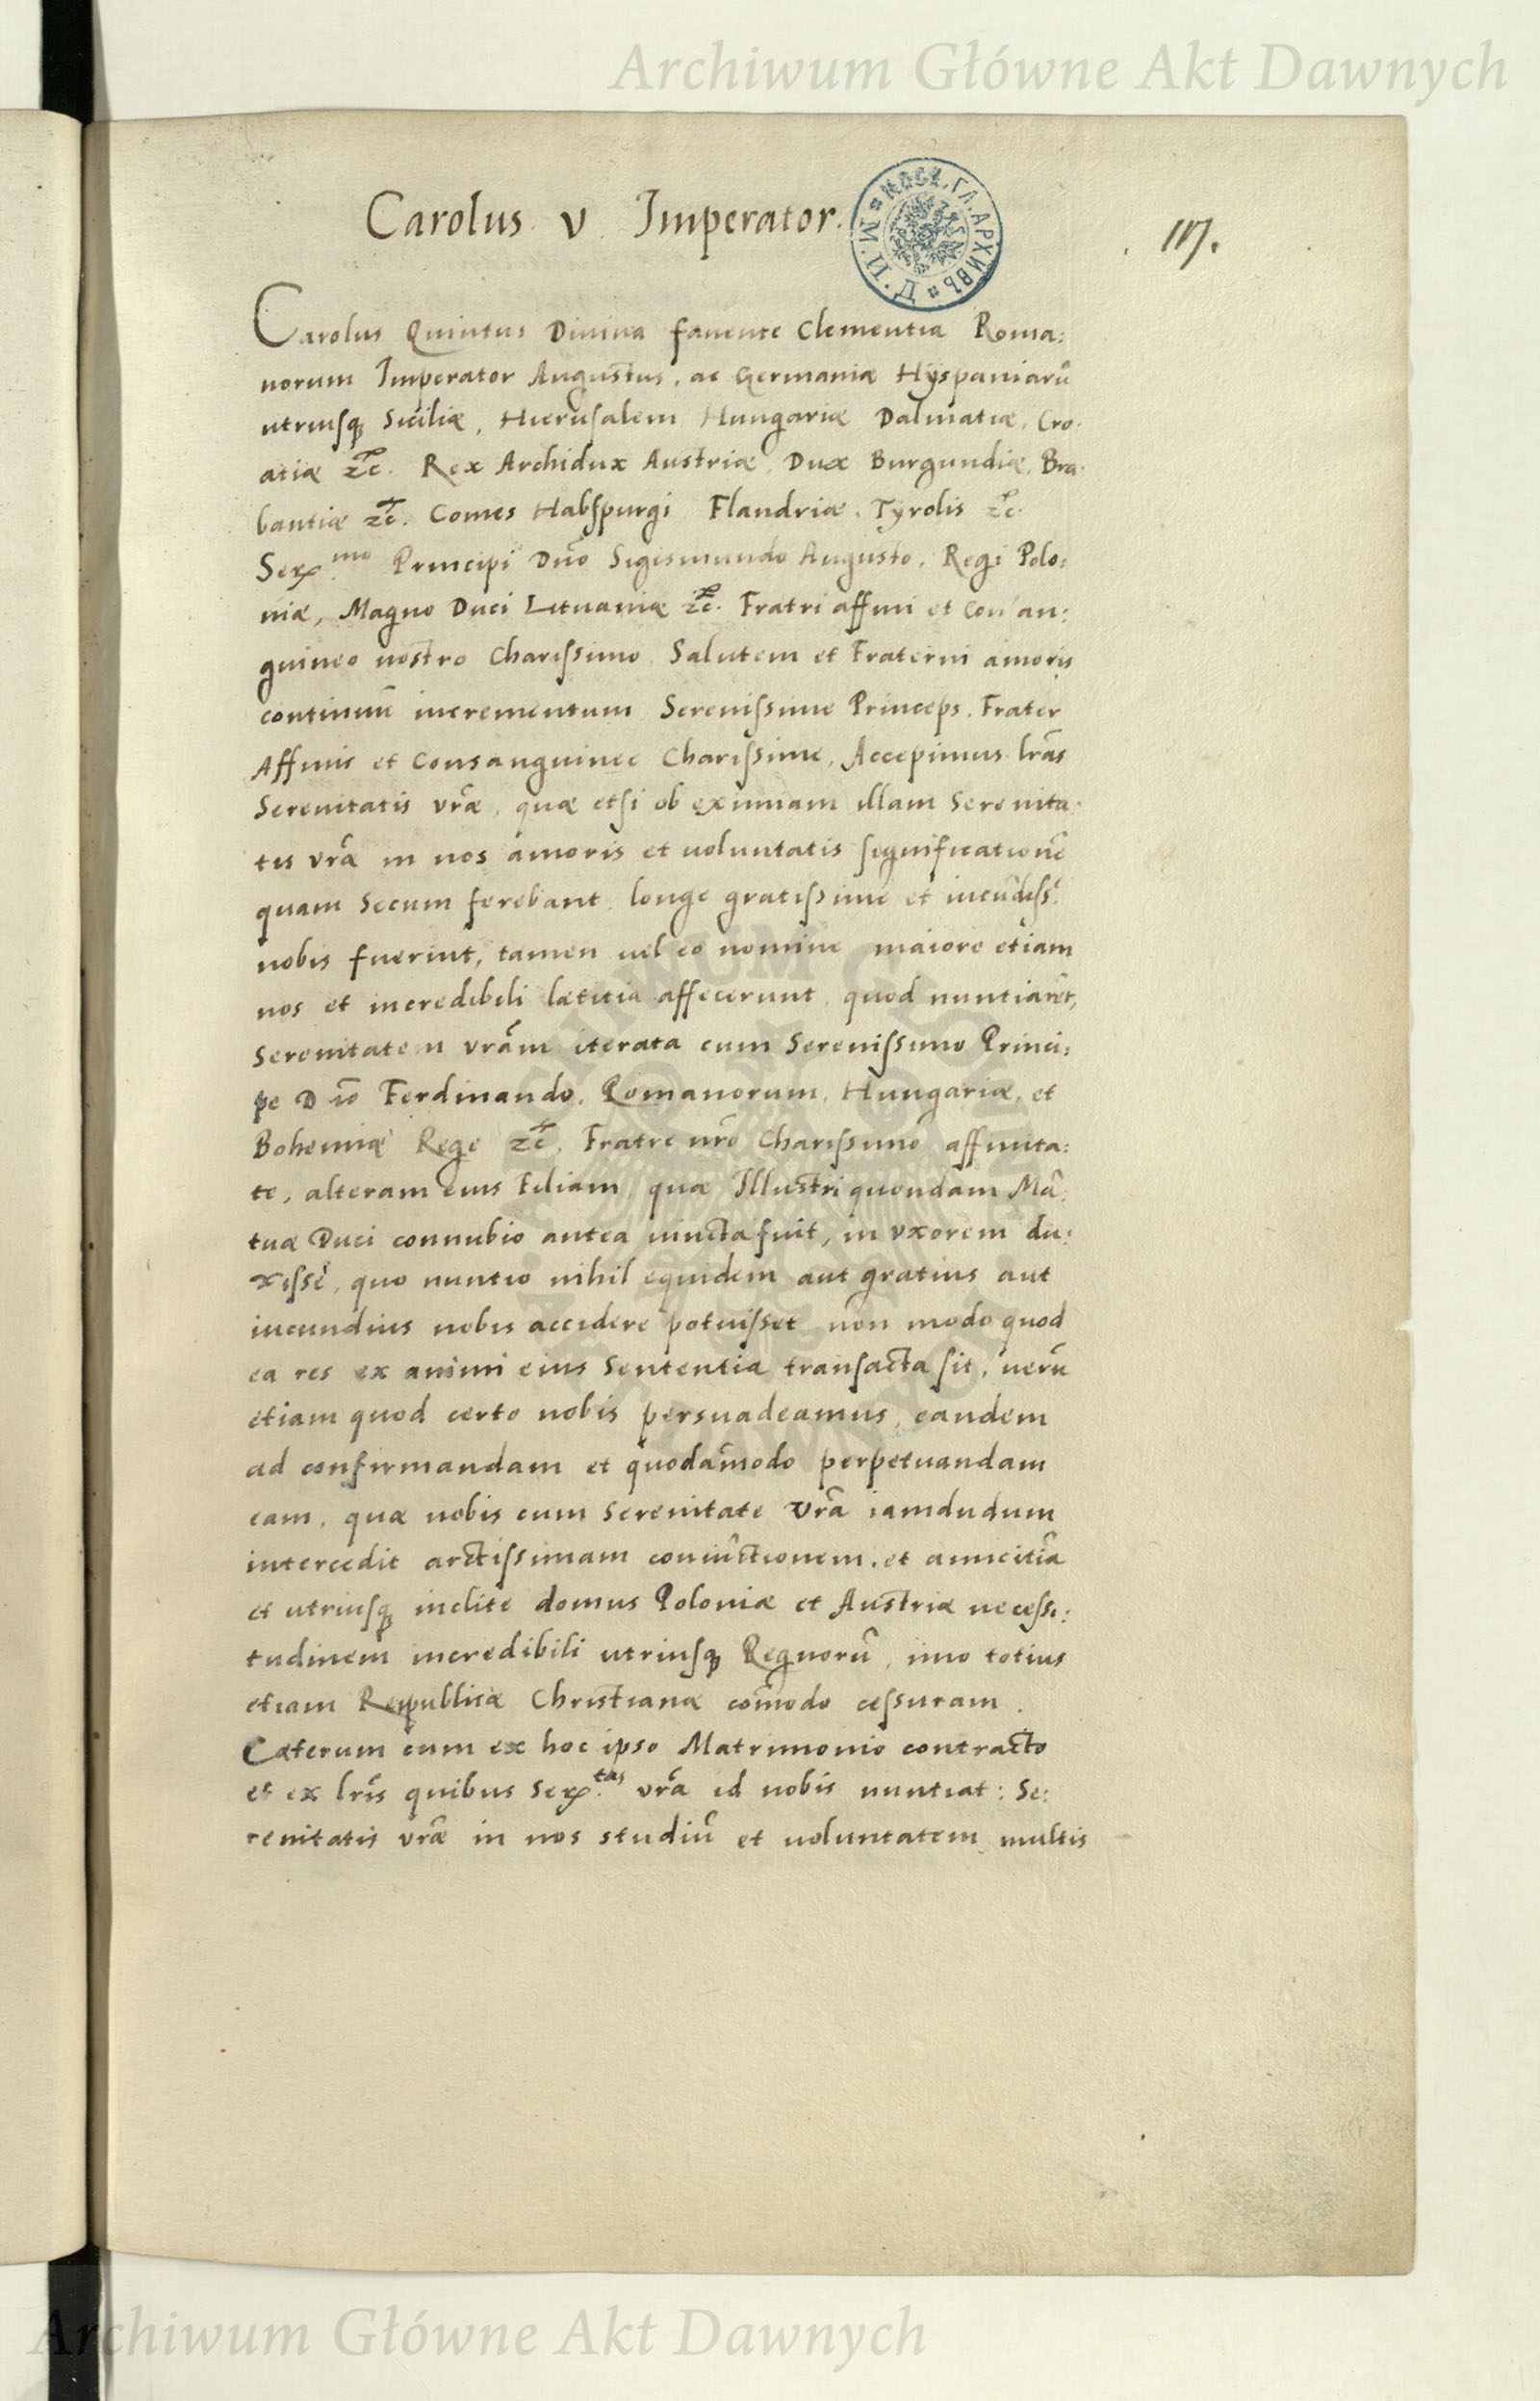 Archiwum Główne Akt Dawnych
Carolus v Imperator.
117.
МОСК. ГЛ. АРХИВЪ
Carolus Quintus Divina favente Clementia Roma:
norum Imperator Augustus, ac Germaniæ Hÿspaniarū
utriusq; Siciliæ, Hierusalem Hungariæ Dalmatiæ, Cro.
atiæ zc̃. Rex Archidux Austriæ, Dux Burgundiæ, Bra.
bantiæ zc̃. Comes Habspurgi Flandriæ, Tyrolis zc̃.
Ser.mo Principi Dnō Sigismundo Augusto, Regi Polo:
niæ, Magno Duci Lituaniæ zc̃. Fratri affini et Consan:
guineo nostro Charissimo Salutem et Fraterni amoris
continuū incrementum Serenissime Princeps, Frater
Affinis et Consanguinee Charissime, Accepimus lrās
Serenitatis vrǣ, quæ etsi ob eximiam illam Serenita.
tis vrā in nos amoris et voluntatis significationē
quam secum ferebant longe gratissimē et iucūdiss:
nobis fuerint, tamen vel eo nomine maiore etiam
nos et incredibili lætitia affecerunt, quod nuntiarēt,
Serenitatem vrām iterata cum Serenissimo Princi:
pe D nō Ferdinando, Romanorum, Hungariæ, et
Bohemiæ Rege zc̃. Fratre nrō Charissimo affinita:
te, alteram eius Filiam, quæ Illustri quondam Mā:
tuæ Duci connubio antea iuncta fuit, in vxorem du:
xisse, quo nuntio nihil equidem aut gratius aut
iucundius nobis accidere potuisset non modo quod
ea res ex animi eius sententia transacta sit, verū
etiam quod certo nobis persuadeamus, eandem
ad confirmandam et quodāmodo perpetuandam
eam, quæ nobis cum Serenitate Vrā iamdudum
intercedit arctissimam coniūctionem, et amicitiā
et utriusq; inclite domus Poloniæ et Austriæ necessi:
tudinem incredibili utriusq; Regnorū, imo totius
etiam Reipublicæ Christianæ cōmodo cessuram.
Cæterum cum ex hoc ipso Matrimonio contracto
et ex lrīs quibus Ser.tas vrā id nobis nuntiat: Se:
renitatis vrǣ in nos studiū et voluntatem multis
Archiwum Główne Akt Dawnych